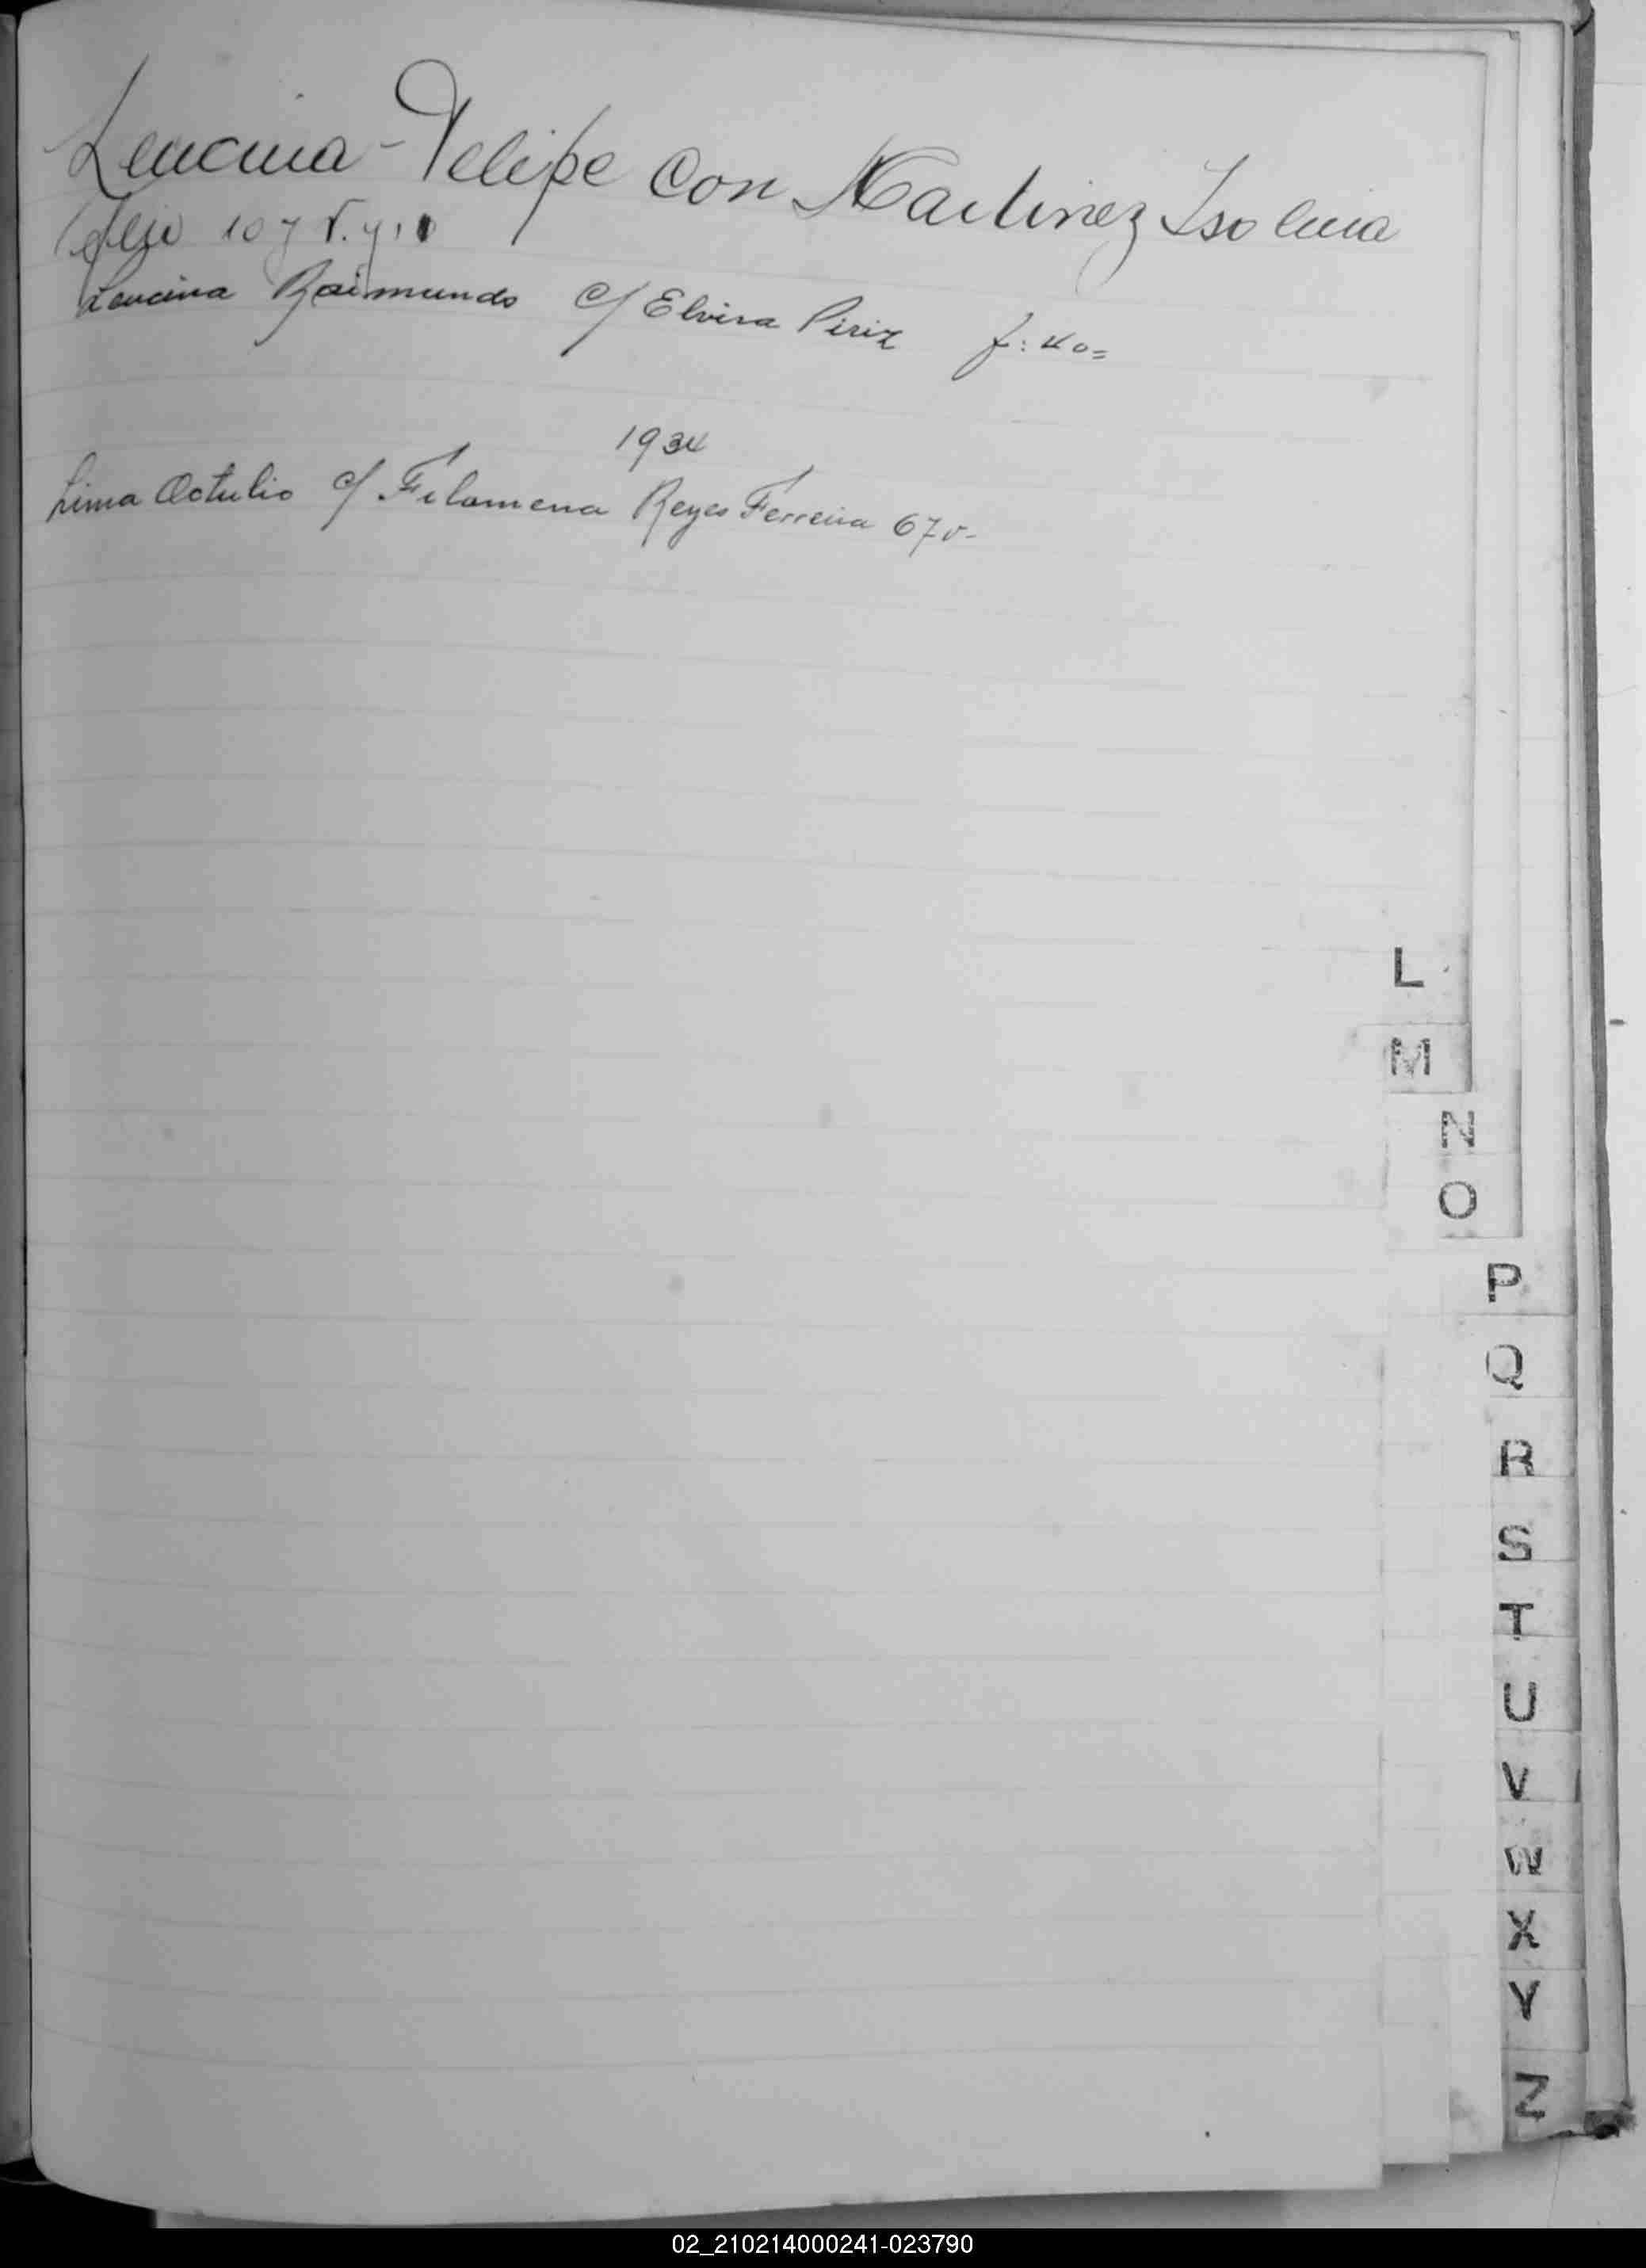 Lencina - Felipe con Martinez Isolina
folio 10 y v. y 11
Lencina Raimundo c/ Elvira Piriz f: 40=
1934
Lima Octulio c/ Filomena Reyes Ferreira 67v-
L
M
N
O
P
Q
R
S
T
U
V
W
X
Y
Z
02_210214000241-023790